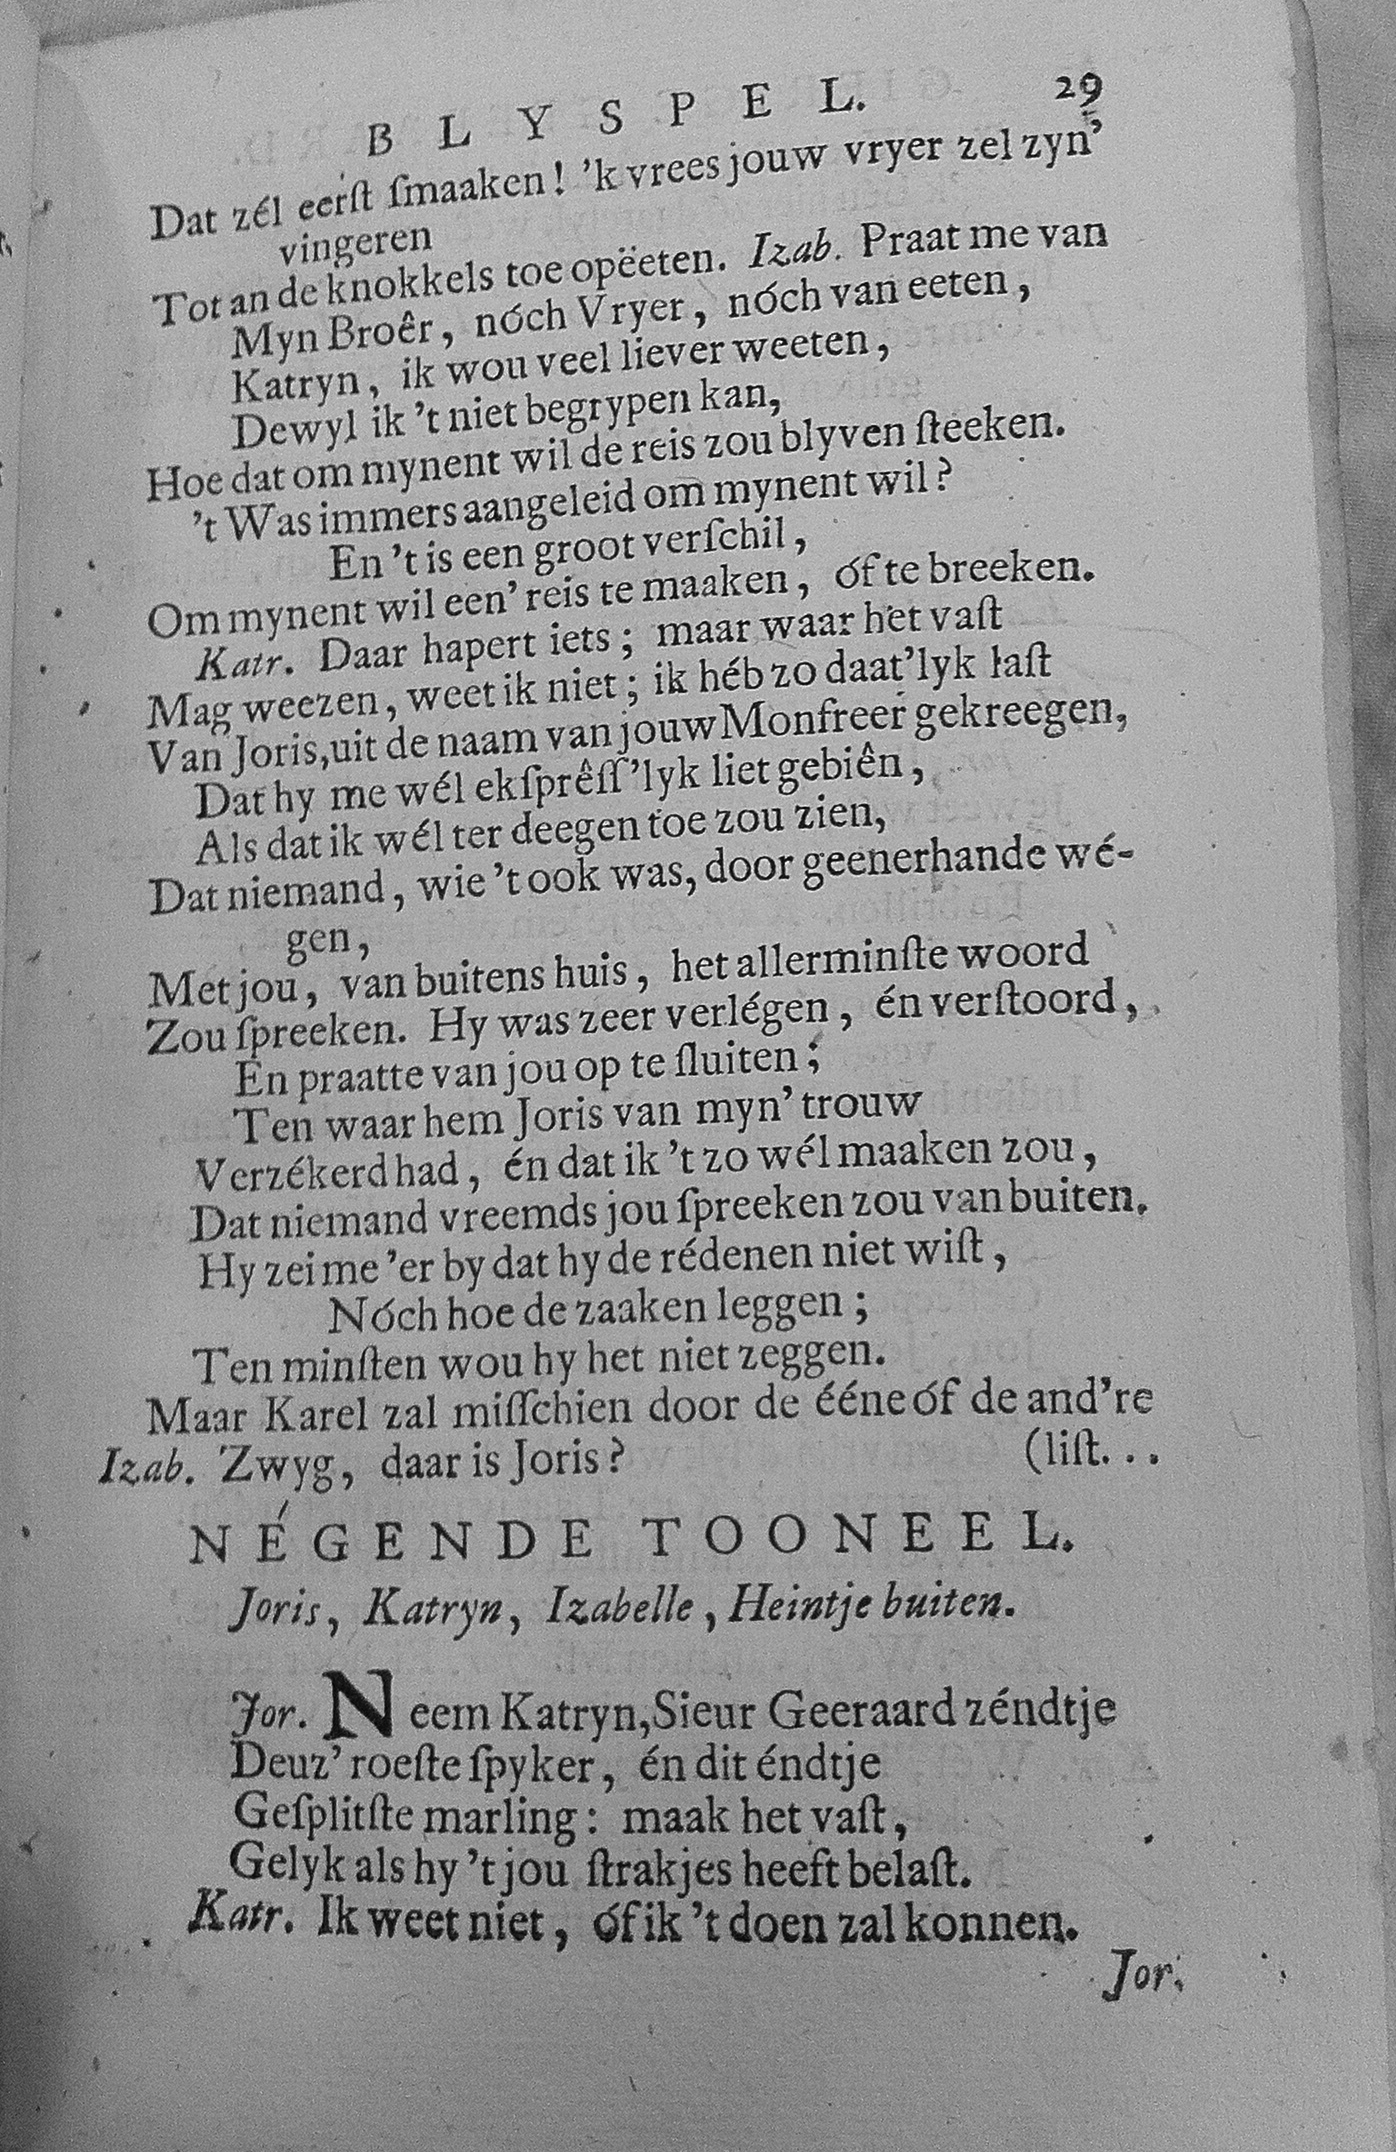 BLYSPEL. 29
Dat zél eerſt ſmaaken! ’k vrees jouw vryer zel zyn’
vingeren
Tot an de knokkels toe opëeten. Izab. Praat me van
Myn Broêr, nóch Vryer, nóch van eeten,
Katryn, ik wou veel liever weeten,
Dewyl ik ’t niet begrypen kan,
Hoe dat om mynent wil de reis zou blyven ſteeken.
’t Was immers aangeleid om mynent wil?
En ’t is een groot verſchil,
Om mynent wil een’ reis te maaken, óf te breeken.
Katr. Daar hapert iets; maar waar het vaſt
Mag weezen, weet ik niet; ik héb zo daat’lyk laſt
Van Joris, uit de naam van jouw Monfreer gekreegen,
Dat hy me wél ekſprêſſ’lyk liet gebiên,
Als dat ik wél ter deegen toe zou zien,
Dat niemand, wie ’t ook was, door geenerhande wé-
gen,
Met jou, van buitens huis, het allerminſte woord
Zou ſpreeken. Hy was zeer verlégen, én verſtoord,
En praatte van jou op te ſluiten;
Ten waar hem Joris van myn’ trouw
Verzékerd had, én dat ik ’t zo wél maaken zou,
Dat niemand vreemds jou ſpreeken zou van buiten.
Hy zei me ’er by dat hy de rédenen niet wiſt,
Nóch hoe de zaaken leggen;
Ten minſten wou hy het niet zeggen.
Maar Karel zal miſſchien door de ééne óf de and’re
Izab. Zwyg, daar is Joris? (liſt...
NÉGENDE TOONEEL.
Joris, Katryn, Izabelle, Heintje buiten.
Jor. Neem Katryn, Sieur Geeraard zéndtje
Deuz’ roeſte ſpyker, én dit éndtje
Geſplitſte marling: maak het vaſt,
Gelyk als hy ’t jou ſtrakjes heeft belaſt.
Katr. Ik weet niet, óf ik ’t doen zal konnen.
Jor.